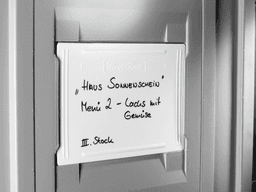 „Haus Sonnenschein“
Menü 2 - Lachs mit
Gemüse
III. Stock